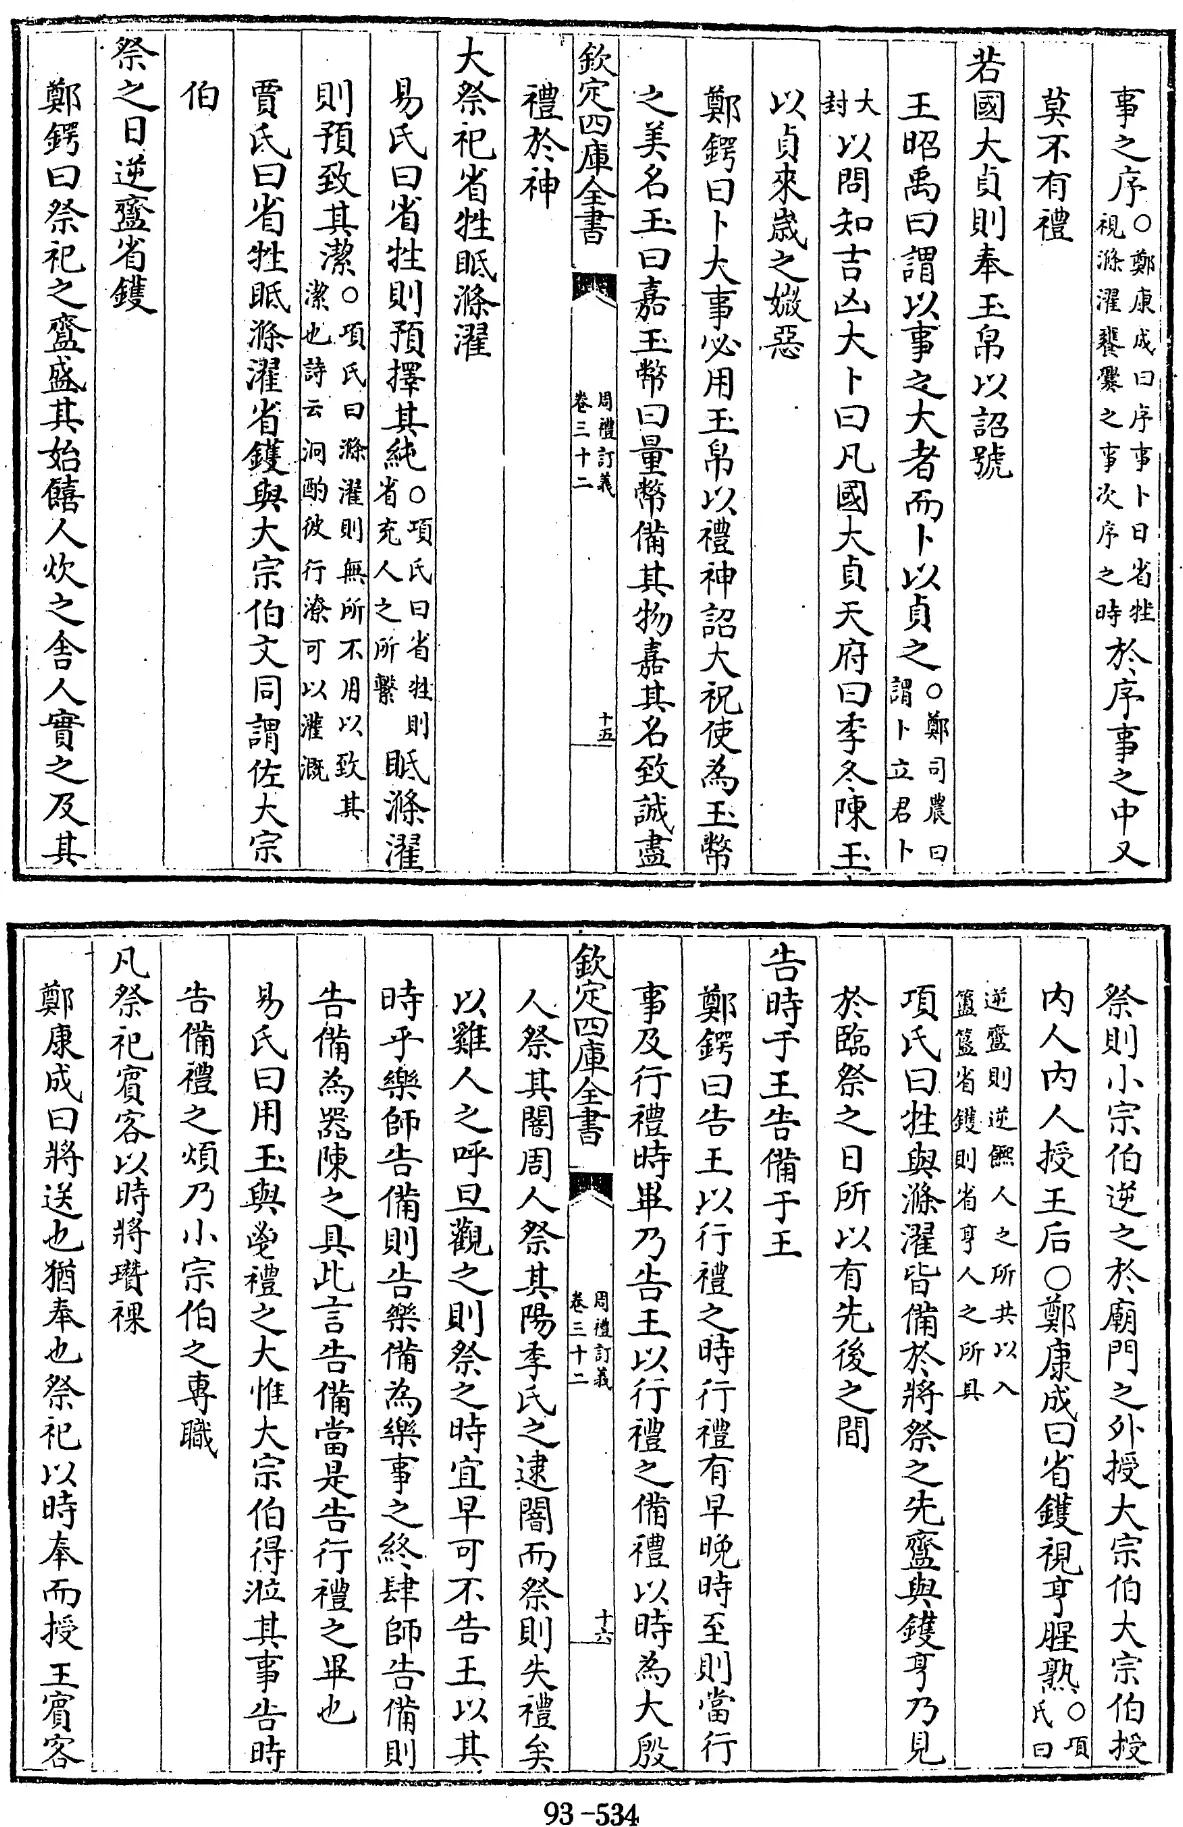 事之序○鄭康成曰序事卜日省牲視滌濯饔爨之事次序之時於序事之中又
莫不有禮
若國大貞則奉玉帛以詔號
王昭禹曰謂以事之大者而卜以貞之○鄭司農曰謂卜立君卜
大封以問知吉凶大卜曰凡國大貞天府曰季冬陳玉
以貞來歲之媺惡
鄭鍔曰卜大事必用玉帛以禮神詔大祝使為玉幣
之美名玉曰嘉玉幣曰量幣備其物嘉其名致誠盡
欽定四庫全書
周禮訂義
卷三十二
十五
禮於神
大祭祀省牲眡滌濯
易氏曰省牲則預擇其純○項氏曰省牲則省充人之所繫眡滌濯
則預致其潔○項氏曰滌濯則無所不用以致其潔也詩云泂酌彼行潦可以濯溉
賈氏曰省牲眡滌濯省鑊與大宗伯文同謂佐大宗
伯
祭之日逆齍省鑊
鄭鍔曰祭祀之齍盛其始饎人炊之舍人實之及其
祭則小宗伯逆之於廟門之外授大宗伯大宗伯授
内人内人授王后○鄭康成曰省鑊視亨腥熟○項氏曰
逆齍則逆饎人之所共以入簠簋省鑊則省亨人之所具
項氏曰牲與滌濯皆備於將祭之先齍與鑊亨乃見
於臨祭之日所以有先後之間
告時于王告備于王
鄭鍔曰告王以行禮之時行禮有早晚時至則當行
事及行禮時畢乃告王以行禮之備禮以時為大殷
欽定四庫全書
周禮訂義
卷三十二
十六
人祭其闇周人祭其陽季氏之逮闇而祭則失禮矣
以雞人之呼旦觀之則祭之時宜早可不告王以其
時乎樂師告備則告樂備為樂事之終肆師告備則
告備為器陳之具此言告備當是告行禮之畢也
易氏曰用玉與鬯禮之大惟大宗伯得涖其事告時
告備禮之煩乃小宗伯之專職
凡祭祀賓客以時將瓚祼
鄭康成曰將送也猶奉也祭祀以時奉而授王賓客
93-534